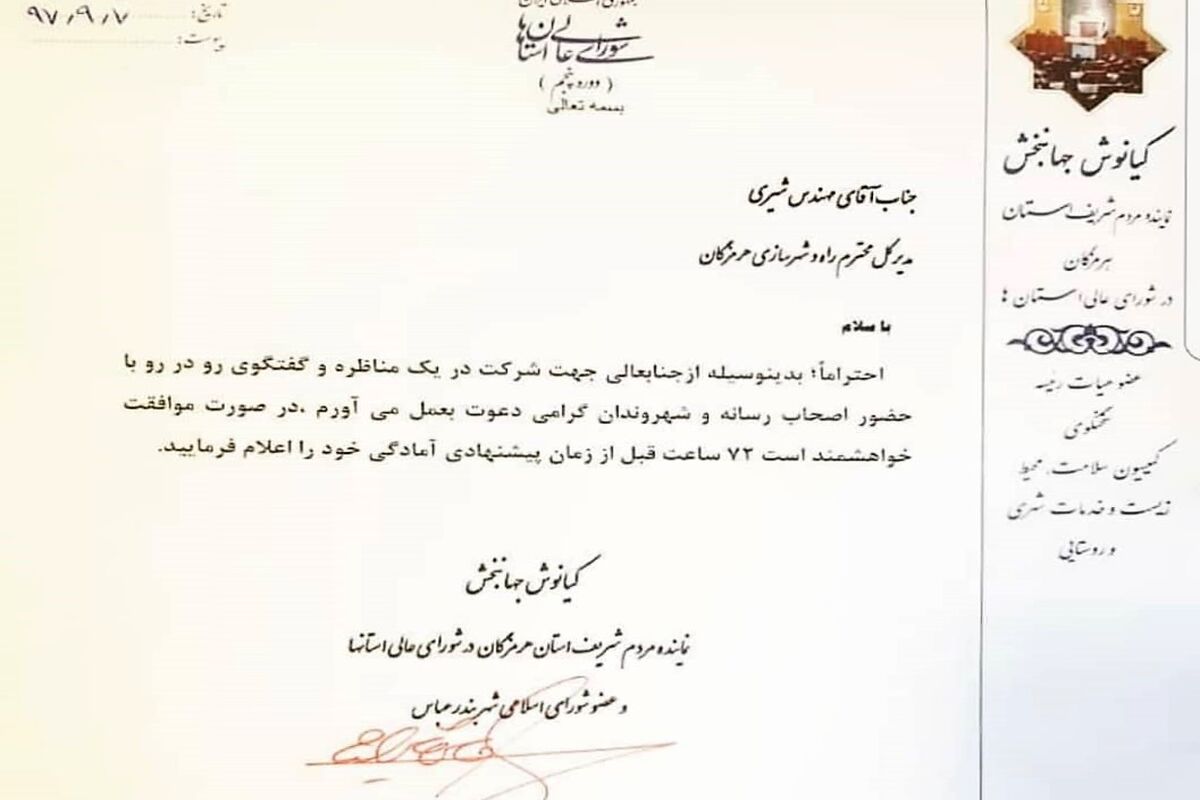 تاریخ: ۹۷/۹/۷
پیوست:
جمهوری اسلامی ایران
شورای عالی استان‌ها
( دوره پنجم )
بسمه تعالی
جناب آقای مهندس شیری
مدیرکل محترم راه و شهرسازی هرمزگان
با سلام
احتراماً؛ بدینوسیله ازجنابعالی جهت شرکت در یک مناظره و گفتگوی رو در رو با
حضور اصحاب رسانه و شهروندان گرامی دعوت بعمل می آورم ،در صورت موافقت
خواهشمند است ۷۲ ساعت قبل از زمان پیشنهادی آمادگی خود را اعلام فرمایید.
کیانوش جهانبخش
نماینده مردم شریف استان هرمزگان در شورای عالی استانها
و عضو شورای اسلامی شهر بندرعباس
کیانوش جهانبخش
نماینده مردم شریف استان
هرمزگان
در شورای عالی استان ها
عضو هیات رئیسه
سخنگوی
کمیسیون سلامت، محیط
زیست و خدمات شهری
و روستایی